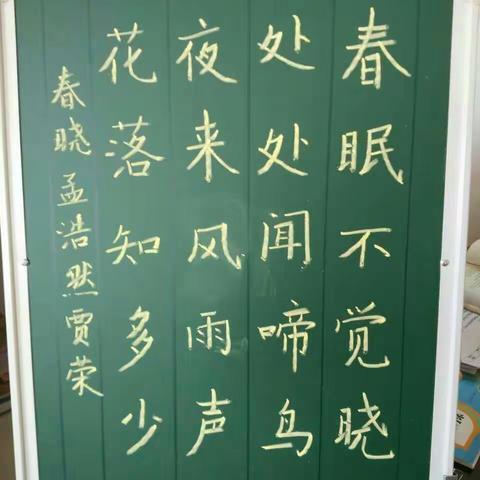 春眠不觉晓
处处闻啼鸟
夜来风雨声
花落知多少
春晓孟浩然贾荣